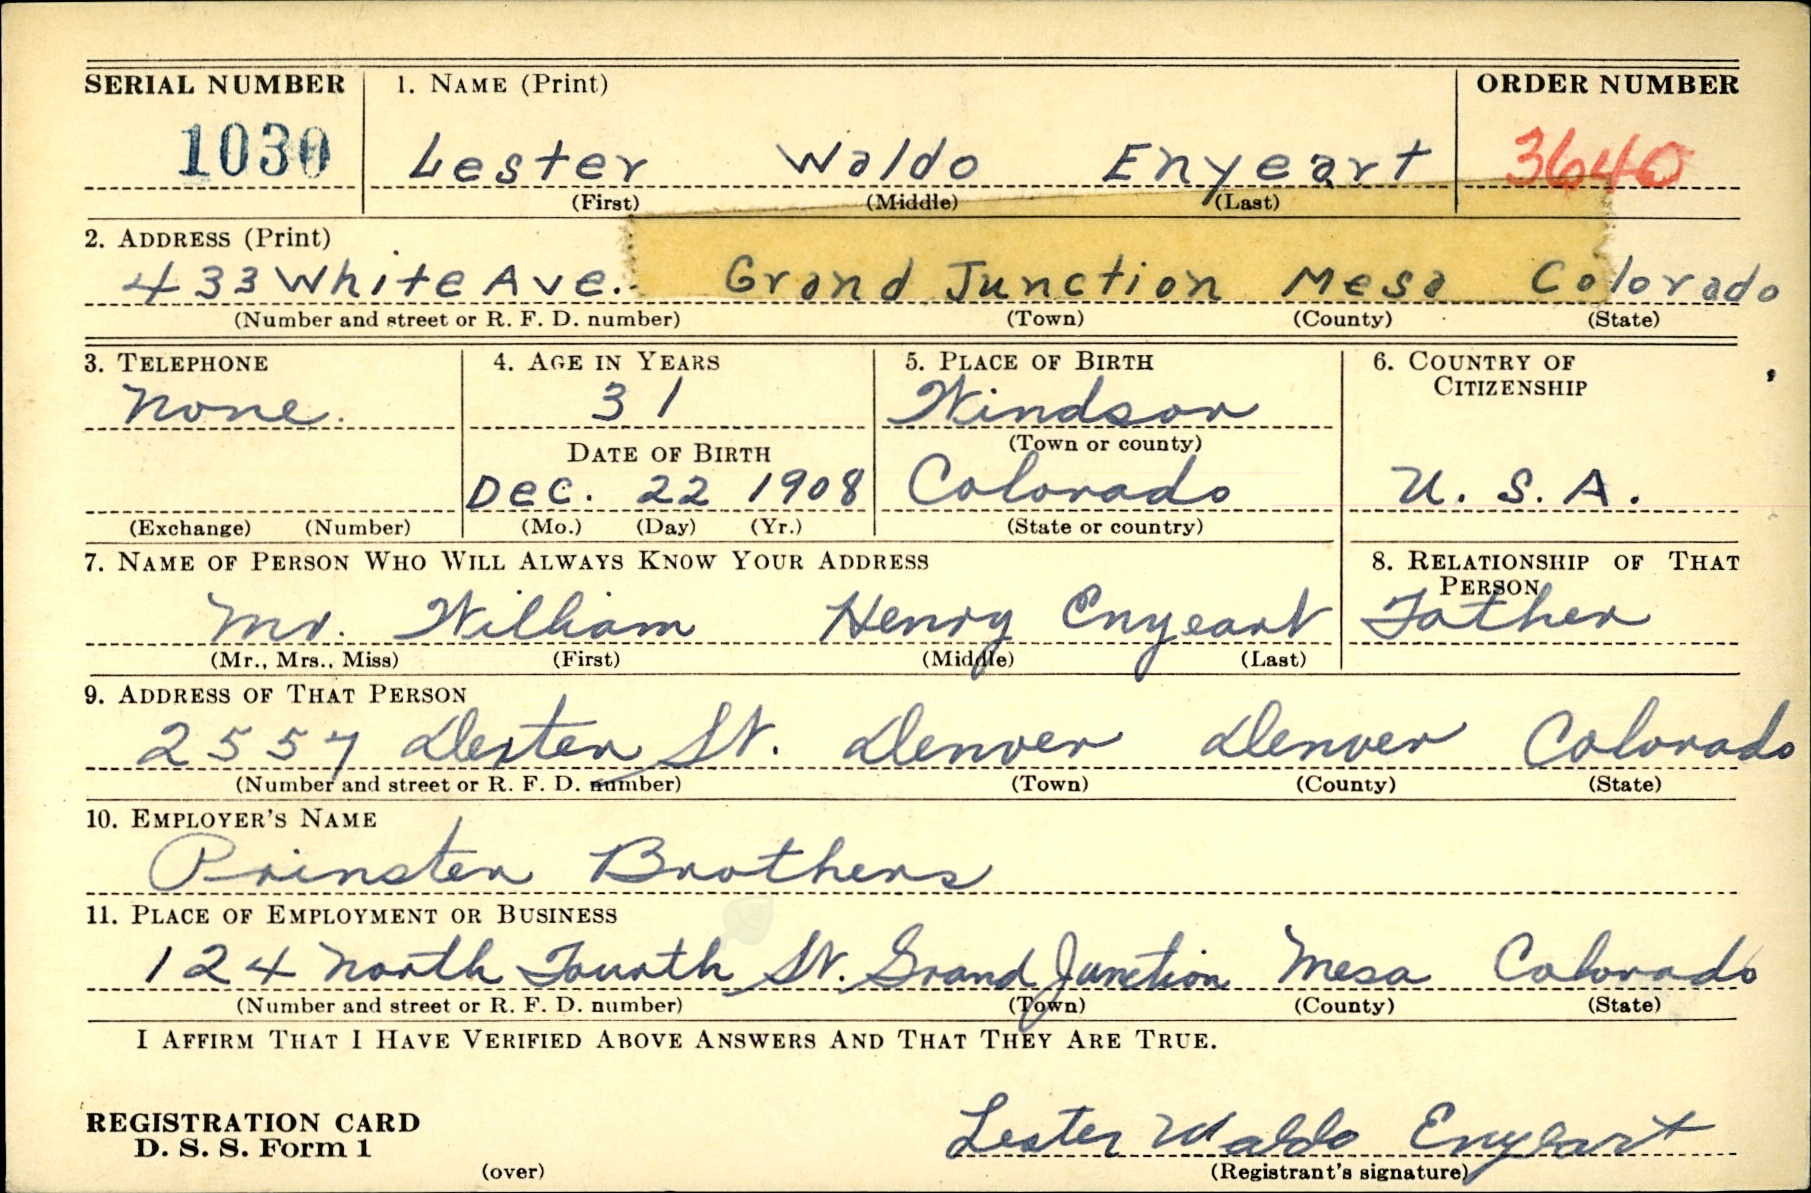 SERIAL NUMBER 1. NAME (Print) ORDER NUMBER
1030 Lester Waldo Enyeart 3640
(First) (Middle) (Last)
2. ADDRESS (Print)
433 White Ave. Grand Junction Mesa Colorado
(Number and street or R. F. D. number) (Town) (County) (State)
3. TELEPHONE 4. AGE IN YEARS 5. PLACE OF BIRTH 6. COUNTRY OF
CITIZENSHIP
None. 31 Windsor
(Town or county)
DATE OF BIRTH
Dec. 22 1908 Colorado U. S. A.
(Exchange) (Number) (Mo.) (Day) (Yr.) (State or country)
7. NAME OF PERSON WHO WILL ALWAYS KNOW YOUR ADDRESS 8. RELATIONSHIP OF THAT
PERSON
Mr. William Henry Enyeart Father
(Mr., Mrs., Miss) (First) (Middle) (Last)
9. ADDRESS OF THAT PERSON
2557 Dexter St. Denver Denver Colorado
(Number and street or R. F. D. number) (Town) (County) (State)
10. EMPLOYER'S NAME
Prinster Brothers
11. PLACE OF EMPLOYMENT OR BUSINESS
124 North Fourth St. Grand Junction Mesa Colorado
(Number and street or R. F. D. number) (Town) (County) (State)
I AFFIRM THAT I HAVE VERIFIED ABOVE ANSWERS AND THAT THEY ARE TRUE.
REGISTRATION CARD
D. S. S. Form 1
Lester Waldo Enyeart
(over) (Registrant's signature)